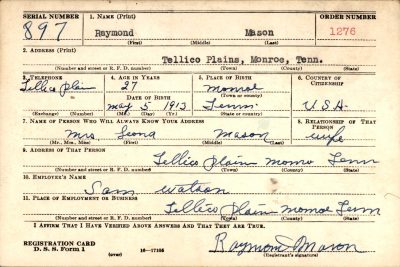 SERIAL NUMBER 1. NAME (Print) ORDER NUMBER
897 Raymond Mason 1276
(First) (Middle) (Last)
2. ADDRESS (Print)
Tellico Plains, Monroe, Tenn.
(Number and street or R. F. D. number) (Town) (County) (State)
3. TELEPHONE 4. AGE IN YEARS 5. PLACE OF BIRTH 6. COUNTRY OF CITIZENSHIP
Tellico Plain 27 Monroe
DATE OF BIRTH (Town or county)
May 5 1913 Tenn. U.S.A.
(Exchange) (Number) (Mo.) (Day) (Yr.) (State or country)
7. NAME OF PERSON WHO WILL ALWAYS KNOW YOUR ADDRESS 8. RELATIONSHIP OF THAT PERSON
Mrs. Leona Mason wife
(Mr., Mrs., Miss) (First) (Middle) (Last)
9. ADDRESS OF THAT PERSON
Tellico Plain Monro Tenn
(Number and street or R. F. D. number) (Town) (County) (State)
10. EMPLOYER'S NAME
Sam Watson
11. PLACE OF EMPLOYMENT OR BUSINESS
Tellico Plain Monroe Tenn
(Number and street or R. F. D. number) (Town) (County) (State)
I AFFIRM THAT I HAVE VERIFIED ABOVE ANSWERS AND THAT THEY ARE TRUE.
REGISTRATION CARD
D. S. S. Form 1 (over) 16—17105 Raymond Mason
(Registrant's signature)